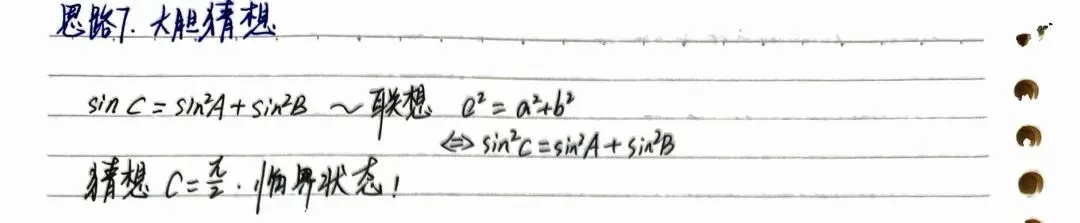 思路7. 大胆猜想
sin C = sin²A + sin²B ～ 联想 c² = a² + b²
⇔ sin²C = sin²A + sin²B
猜想 C = π/2 . 临界状态!